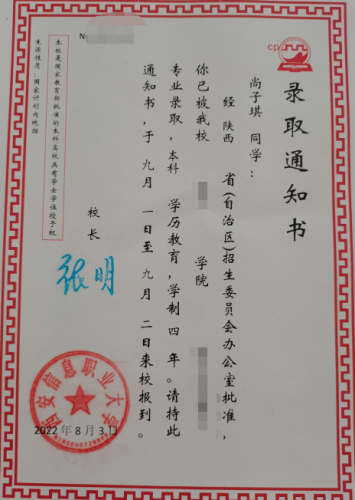 录取通知书
尚子琪 同学：
经 陕西 省（自治区）招生委员会办公室批准，
你已被我校 学院
专业录取，本科 学历教育，学制 四 年。请持此
通知书，于 九月 一日至 九月 二日来校报到。
校长
张明
西安信息职业大学
2022年8月3日
本校是国家教育部批准的本科高校具有学士学位授予权
生源性质：国家计划内统招
N
CP